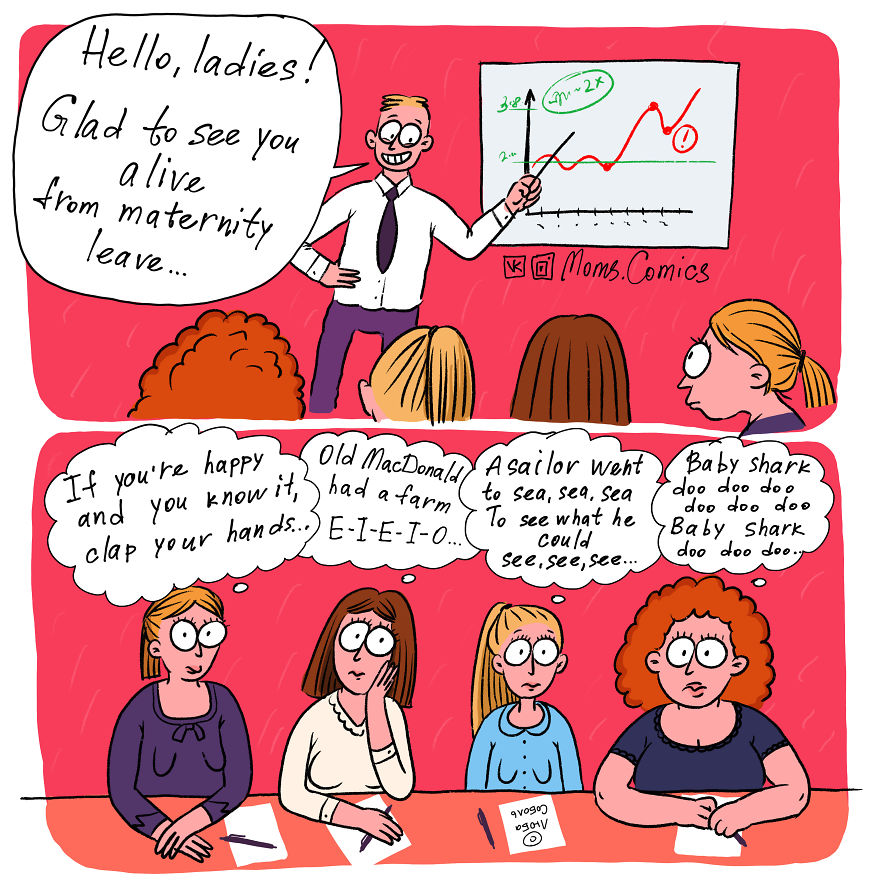 Hello, ladies!
Glad to see you
alive
from maternity
leave...
2x
Moms.Comics
If you're happy
and you know it,
clap your hands...
Old MacDonald
had a farm
E-I-E-I-O...
A sailor went
to sea, sea, sea
To see what he
could
see, see, see...
Baby shark
doo doo doo
doo doo doo
Baby shark
doo doo doo...
Люба
Соболь